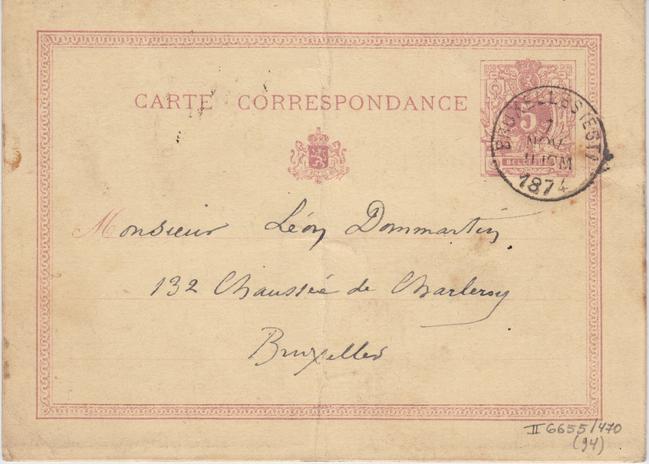 CARTE CORRESPONDANCE
5
BRUXELLES (EST)
NOV
1874
Monsieur Léon Dommartin
132 Chaussée de Charleroy
Bruxelles
II 6655/470
(94)